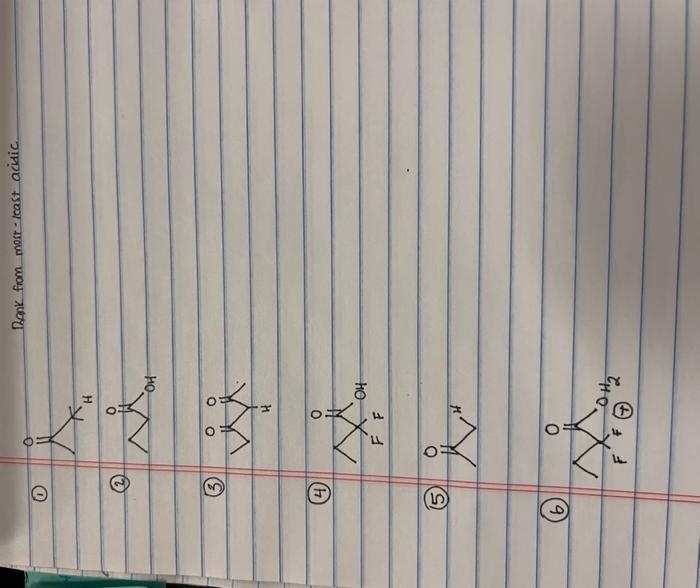 Rank from most-least acidic
①
O
H
②
O
OH
③
O O
H
④
O
OH
F F
⑤
O
H
⑥
O
OH2
F F ⊕